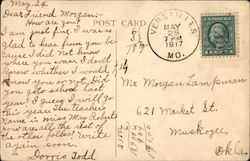 May. 24.
Dear friend Morgan:-
How are you?
I am just fine. I was so
glad to hear from you be-
cause I did not know
where you was. I don't
know whether I would
know you or not. Did
you go to school last
year? I guess I will go
this year. The teacher's
name is Miss May Roberts
How are all the rest of
the other folks? Write
again soon.
Dorris Todd
POST CARD
VERSAILLES
MAY
25
1917
MO.
Mr Morgan Lampman
621 Market St.
Muskogee,
Okla.